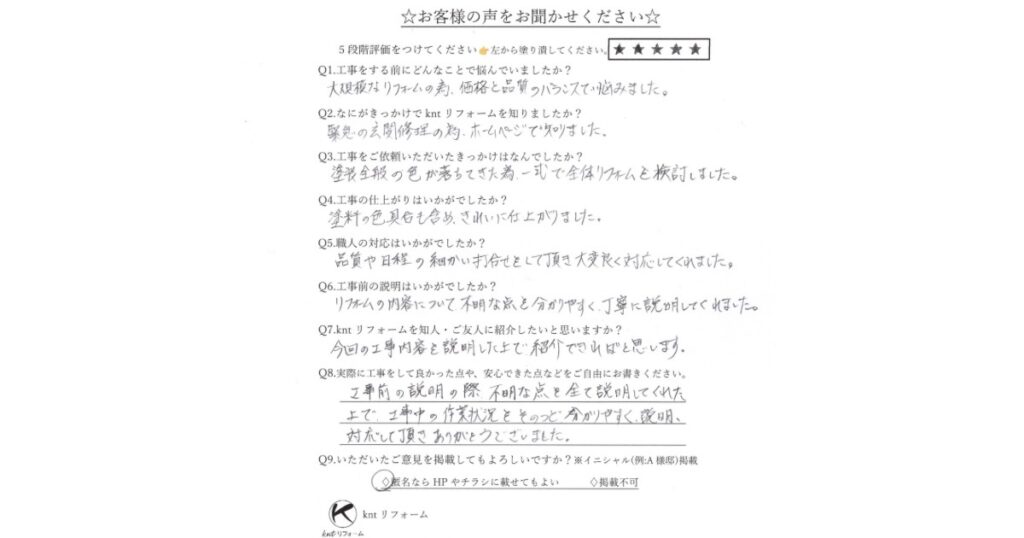 ☆お客様の声をお聞かせください☆
5段階評価をつけてください👉左から塗り潰してください。★★★★★
Q1.工事をする前にどんなことで悩んでいましたか？
大規模なリフォームの為、価格と品質のバランスで悩みました。
Q2.なにがきっかけでkntリフォームを知りましたか？
緊急の玄関修理の為、ホームページで知りました。
Q3.工事をご依頼いただいたきっかけはなんでしたか？
塗装全般の色が落ちてきた為、一式で全体リフォームを検討しました。
Q4.工事の仕上がりはいかがでしたか？
塗料の色具合も含め、きれいに仕上がりました。
Q5.職人の対応はいかがでしたか？
品質や日程の細かい打合せをして頂き大変良く対応してくれました。
Q6.工事前の説明はいかがでしたか？
リフォームの内容について、不明な点を分かりやすく、丁寧に説明してくれました。
Q7.kntリフォームを知人・ご友人に紹介したいと思いますか？
今回の工事内容を説明した上で紹介できればと思います。
Q8.実際に工事をして良かった点や、安心できた点などをご自由にお書きください。
工事前の説明の際、不明な点を全て説明してくれた
上で、工事中の作業状況をそのつど分かりやすく、説明、
対応して頂きありがとうございました。
Q9.いただいたご意見を掲載してもよろしいですか？※イニシャル(例:A様邸)掲載
◇匿名ならHPやチラシに載せてもよい　◇掲載不可
K kntリフォーム
kntリフォーム